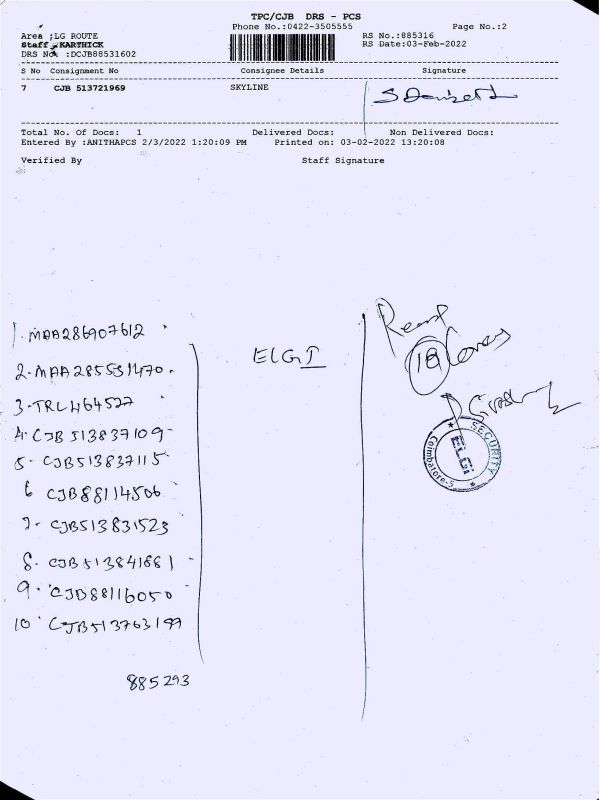 TPC/CJB DRS - PCS
Phone No.:0422-3505555 Page No.:2
Area :LG ROUTE RS No.:885316
Staff :KARTHICK RS Date:03-Feb-2022
DRS No :DCJB88531602
S No Consignment No Consignee Details Signature
7 CJB 513721969 SKYLINE
Total No. Of Docs: 1 Delivered Docs: Non Delivered Docs:
Entered By :ANITHAPCS 2/3/2022 1:20:09 PM Printed on: 03-02-2022 13:20:08
Verified By Staff Signature
1. MAA286907612
2. MAA285531470.
3. TRL464527
4. CJB 513837109
5. CJB513837115
6 CJB88114506
7. CJB513831523
8. CJB513841881
9. CJB88116050
10 CJB513763199
885293
ELGI
10
SECURITY
ELGi
Coimbatore-5